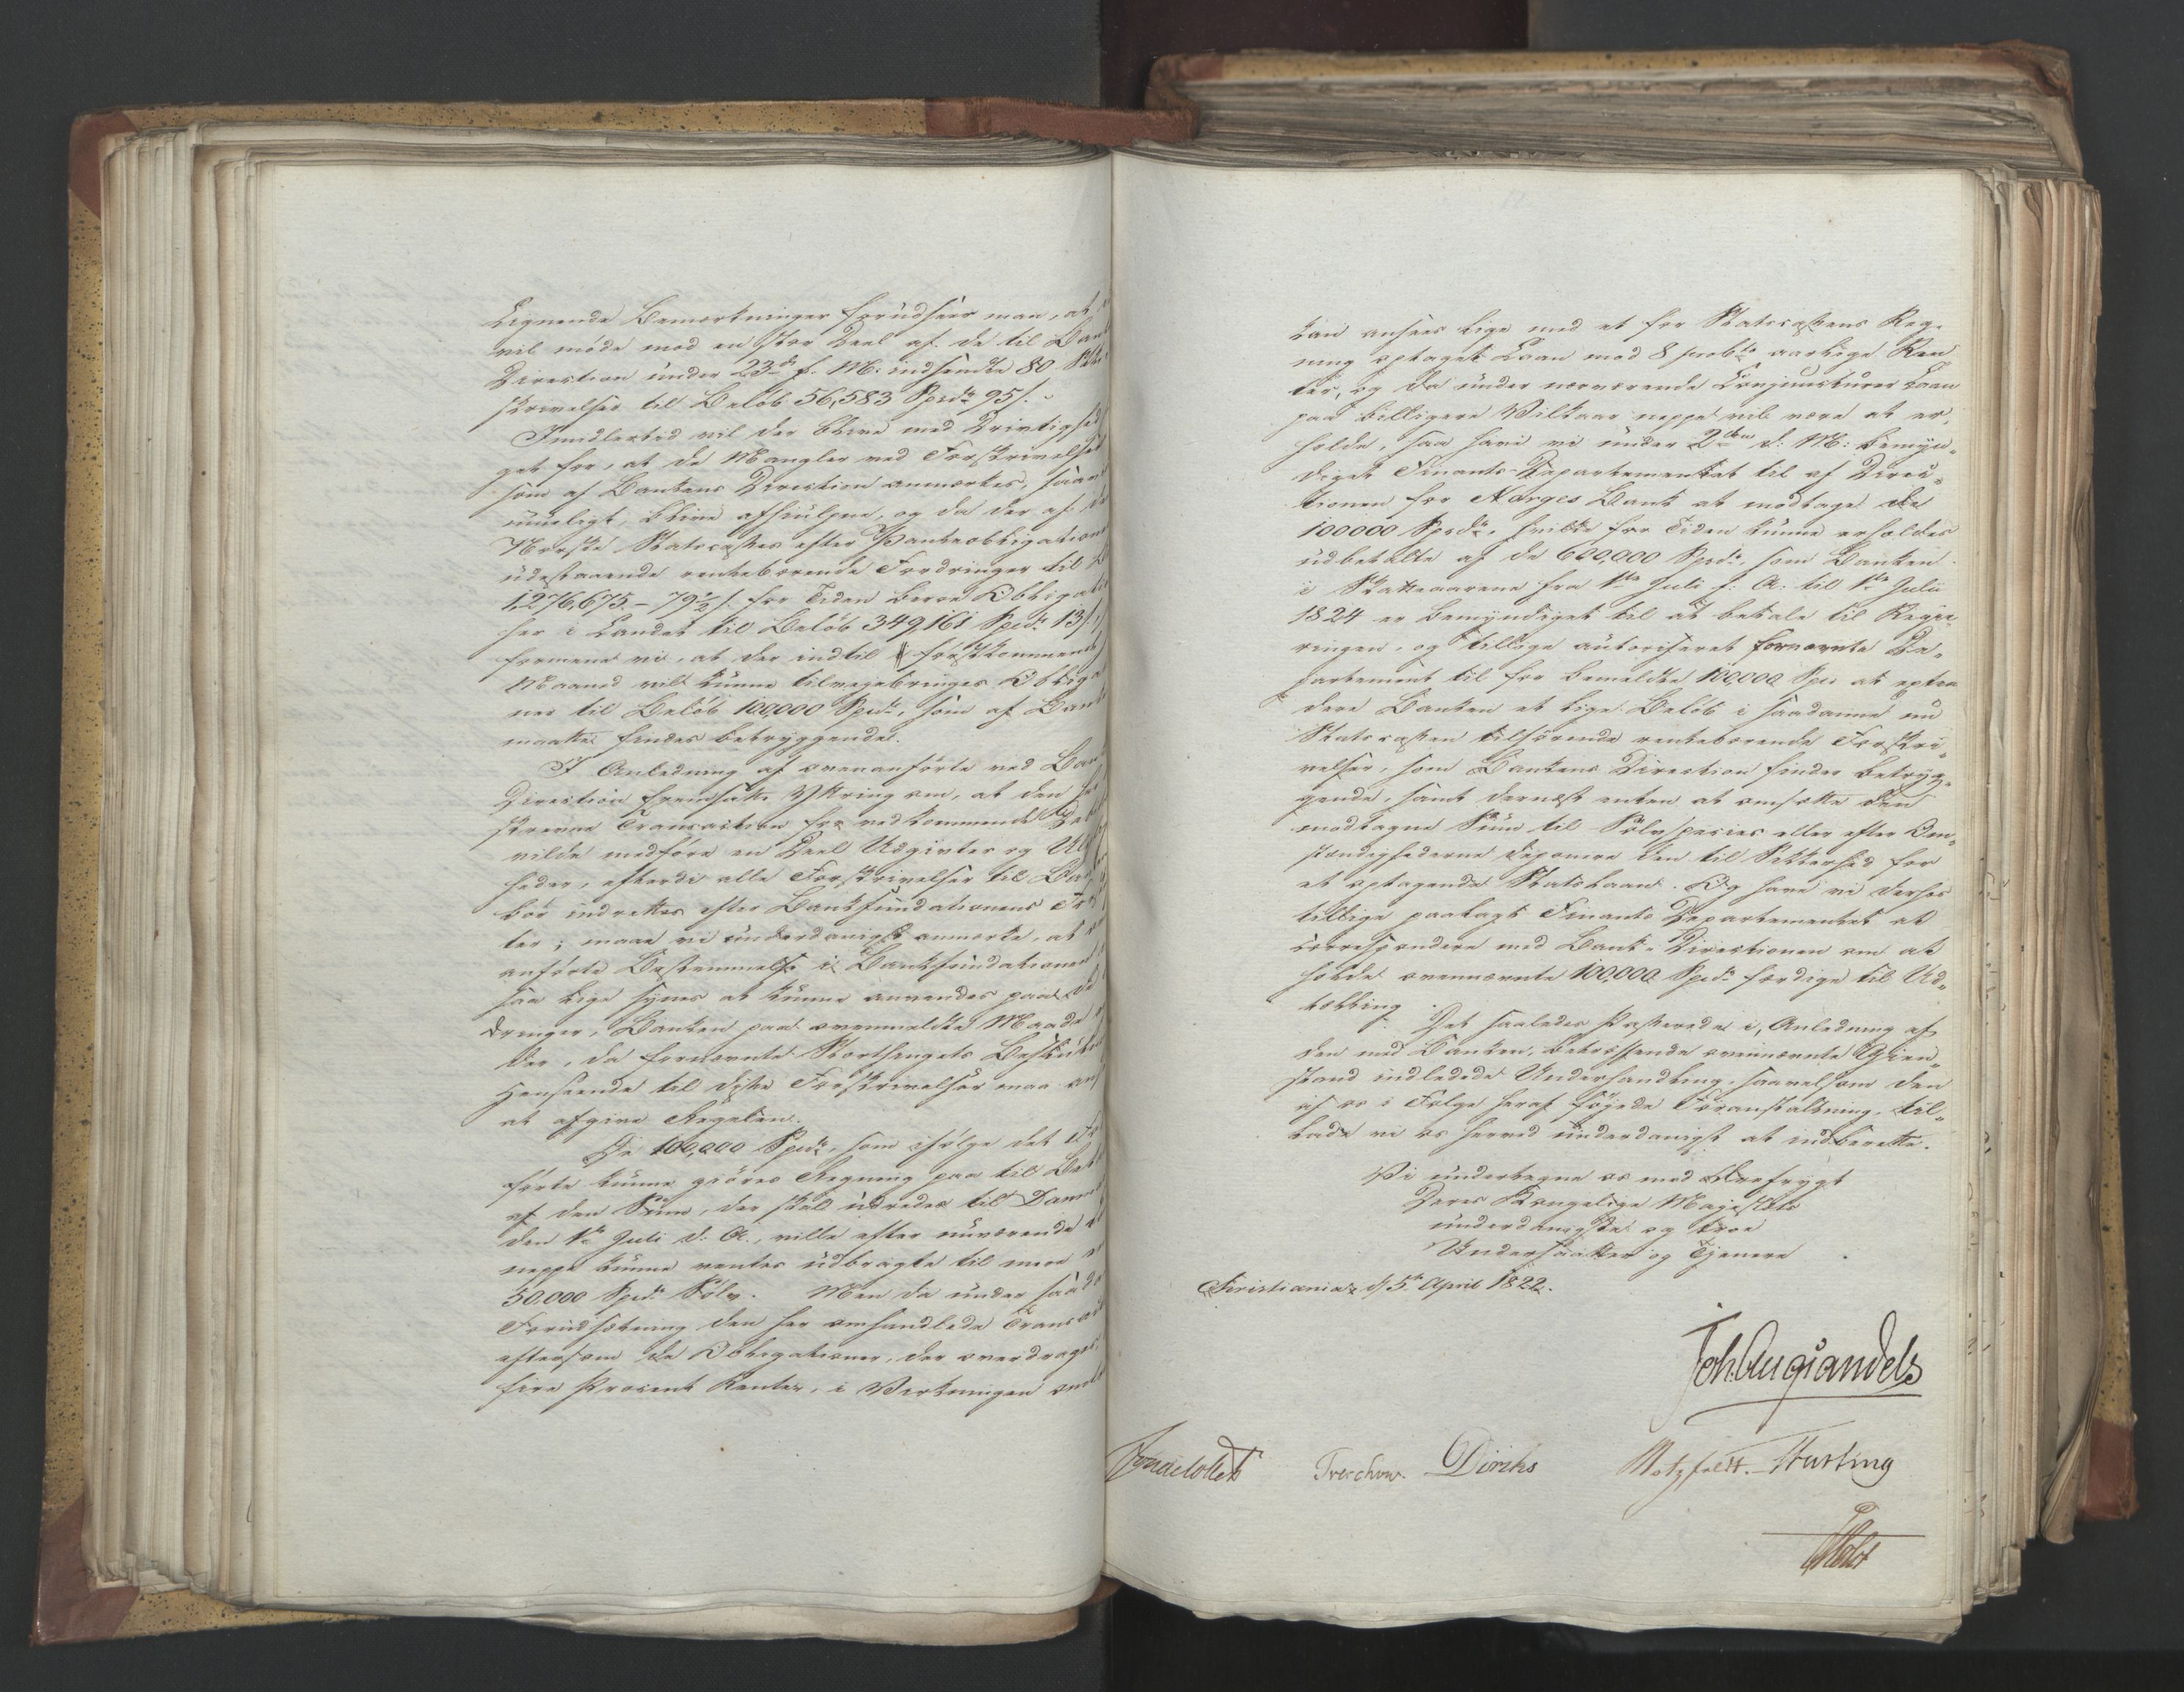 Lignende Bemærkninger forudsees maa, at
vil møde mod en stor Deel af de til Ban
Direction under 23de f. M. indsendte 80
skrivelser til Beløb 56,583 Spd. 95 s.
Imidlertid vil der blive med Drivtighed
get for, at de Mangler ved Forskrivelser
som af Bankens Direction anmærkes, saavidt
mueligt, blive afhiulpne, og da der af
Norske Statscasses efter Panteobligationer
udestaaende rentebærende Fordringer til
1,276,675 - 79½ s. for Tiden beroe Obligat
her i Landet til Beløb 349,161 Spd. 13 s.
formene vi, at der indtil førstkommende
Maaned vil kunne tilvejebringes Obliga
ner til Beløb 100,000 Spd., som af Bank
maatte findes betryggende.
I Anledning af ovenanførte ved Bank
Direction fremsatte Yttring om, at den
skrevne Transaction for vedkommende Deb
vilde medføre en Deel Udgivter og
heder, efterdi alle Forskrivelser til Ban
bør indrettes efter Bankfundationens
ter; maae vi underdanigst anmærke, at
anførte Bestemmelse i Bankfundationen
saa lige synes at kunne anvendes paa de
dringer, Banken paa ovenmeldte Maade
der, da fornævnte Storthingets Beslut
Henseende til disse Forskrivelser maa ans
at afgive Regelen.
De 100,000 Spd., som ifølge det
førte kunne giøres Regning paa til Bet
af den Sum, der skal udredes til Danm
den 1ste Juli d. A., ville efter nuværende
neppe kunne ventes udbragte til mere
50,000 Spd. Sølv. Men da under saad
Forudsætning den her omhandlede Trans
eftersom de Obligationer, der overdrages
fire Procent Renter, i Virkningen
kan ansees lige med et for Statscassens Reg-
ning optaget Laan mod 8 procto aarlige Ren
ter, og da under nærværende Conjuncturer Laan
paa billigere Vilkaar neppe vil være at er
holde, saa have vi under 2den d. M. bemyn-
diget Finants-Departementet til af Direc-
tionen for Norges Bank at modtage de
100000 Spd., hvilke for Tiden kunne erholdes
udbetalte af de 600,000 Spd., som Banken
i Skatteaarene fra 1ste Juli f. A. til 1ste Juli
1824 er bemyndiget til at betale til Regie
ringen, og tillige autoriseret fornævnte De-
partement til for bemeldte 100,000 Spd. at extra
dere Banken et lige Beløb i saadanne nu
Statscassen tilhørende rentebærende Forskri
velser, som Bankens Direction finder betryg-
gende, samt dernæst enten at omsætte den
modtagne Sum til Sølvspecies eller efter Om-
stændighederne deponere den til Sikkerhed for
et optagende Statslaan. Og have vi derhos
tillige paalagt Finants Departementet at
correspondere med Bank-Directionen om at
holde ovennævnte 100,000 Spd. færdige til Ud-
tælling.
Det saaledes Passerede i Anledning af
den med Banken, betræffende ovennævnte Gien-
stand indledede Underhandling, saavelsom den
af os i Følge heraf føiede Foranstaltning, til-
lade vi os herved underdanigst at indberette.
Vi undertegne os med Ærefrygt
Deres Kongelige Majestæts
underdanigste og troe
Undersaatter og Tjenere
Christiania d. 5te April 1822.
Joh. Aug. Sandels
Treschow. Diriks Motzfeldt.
Holst